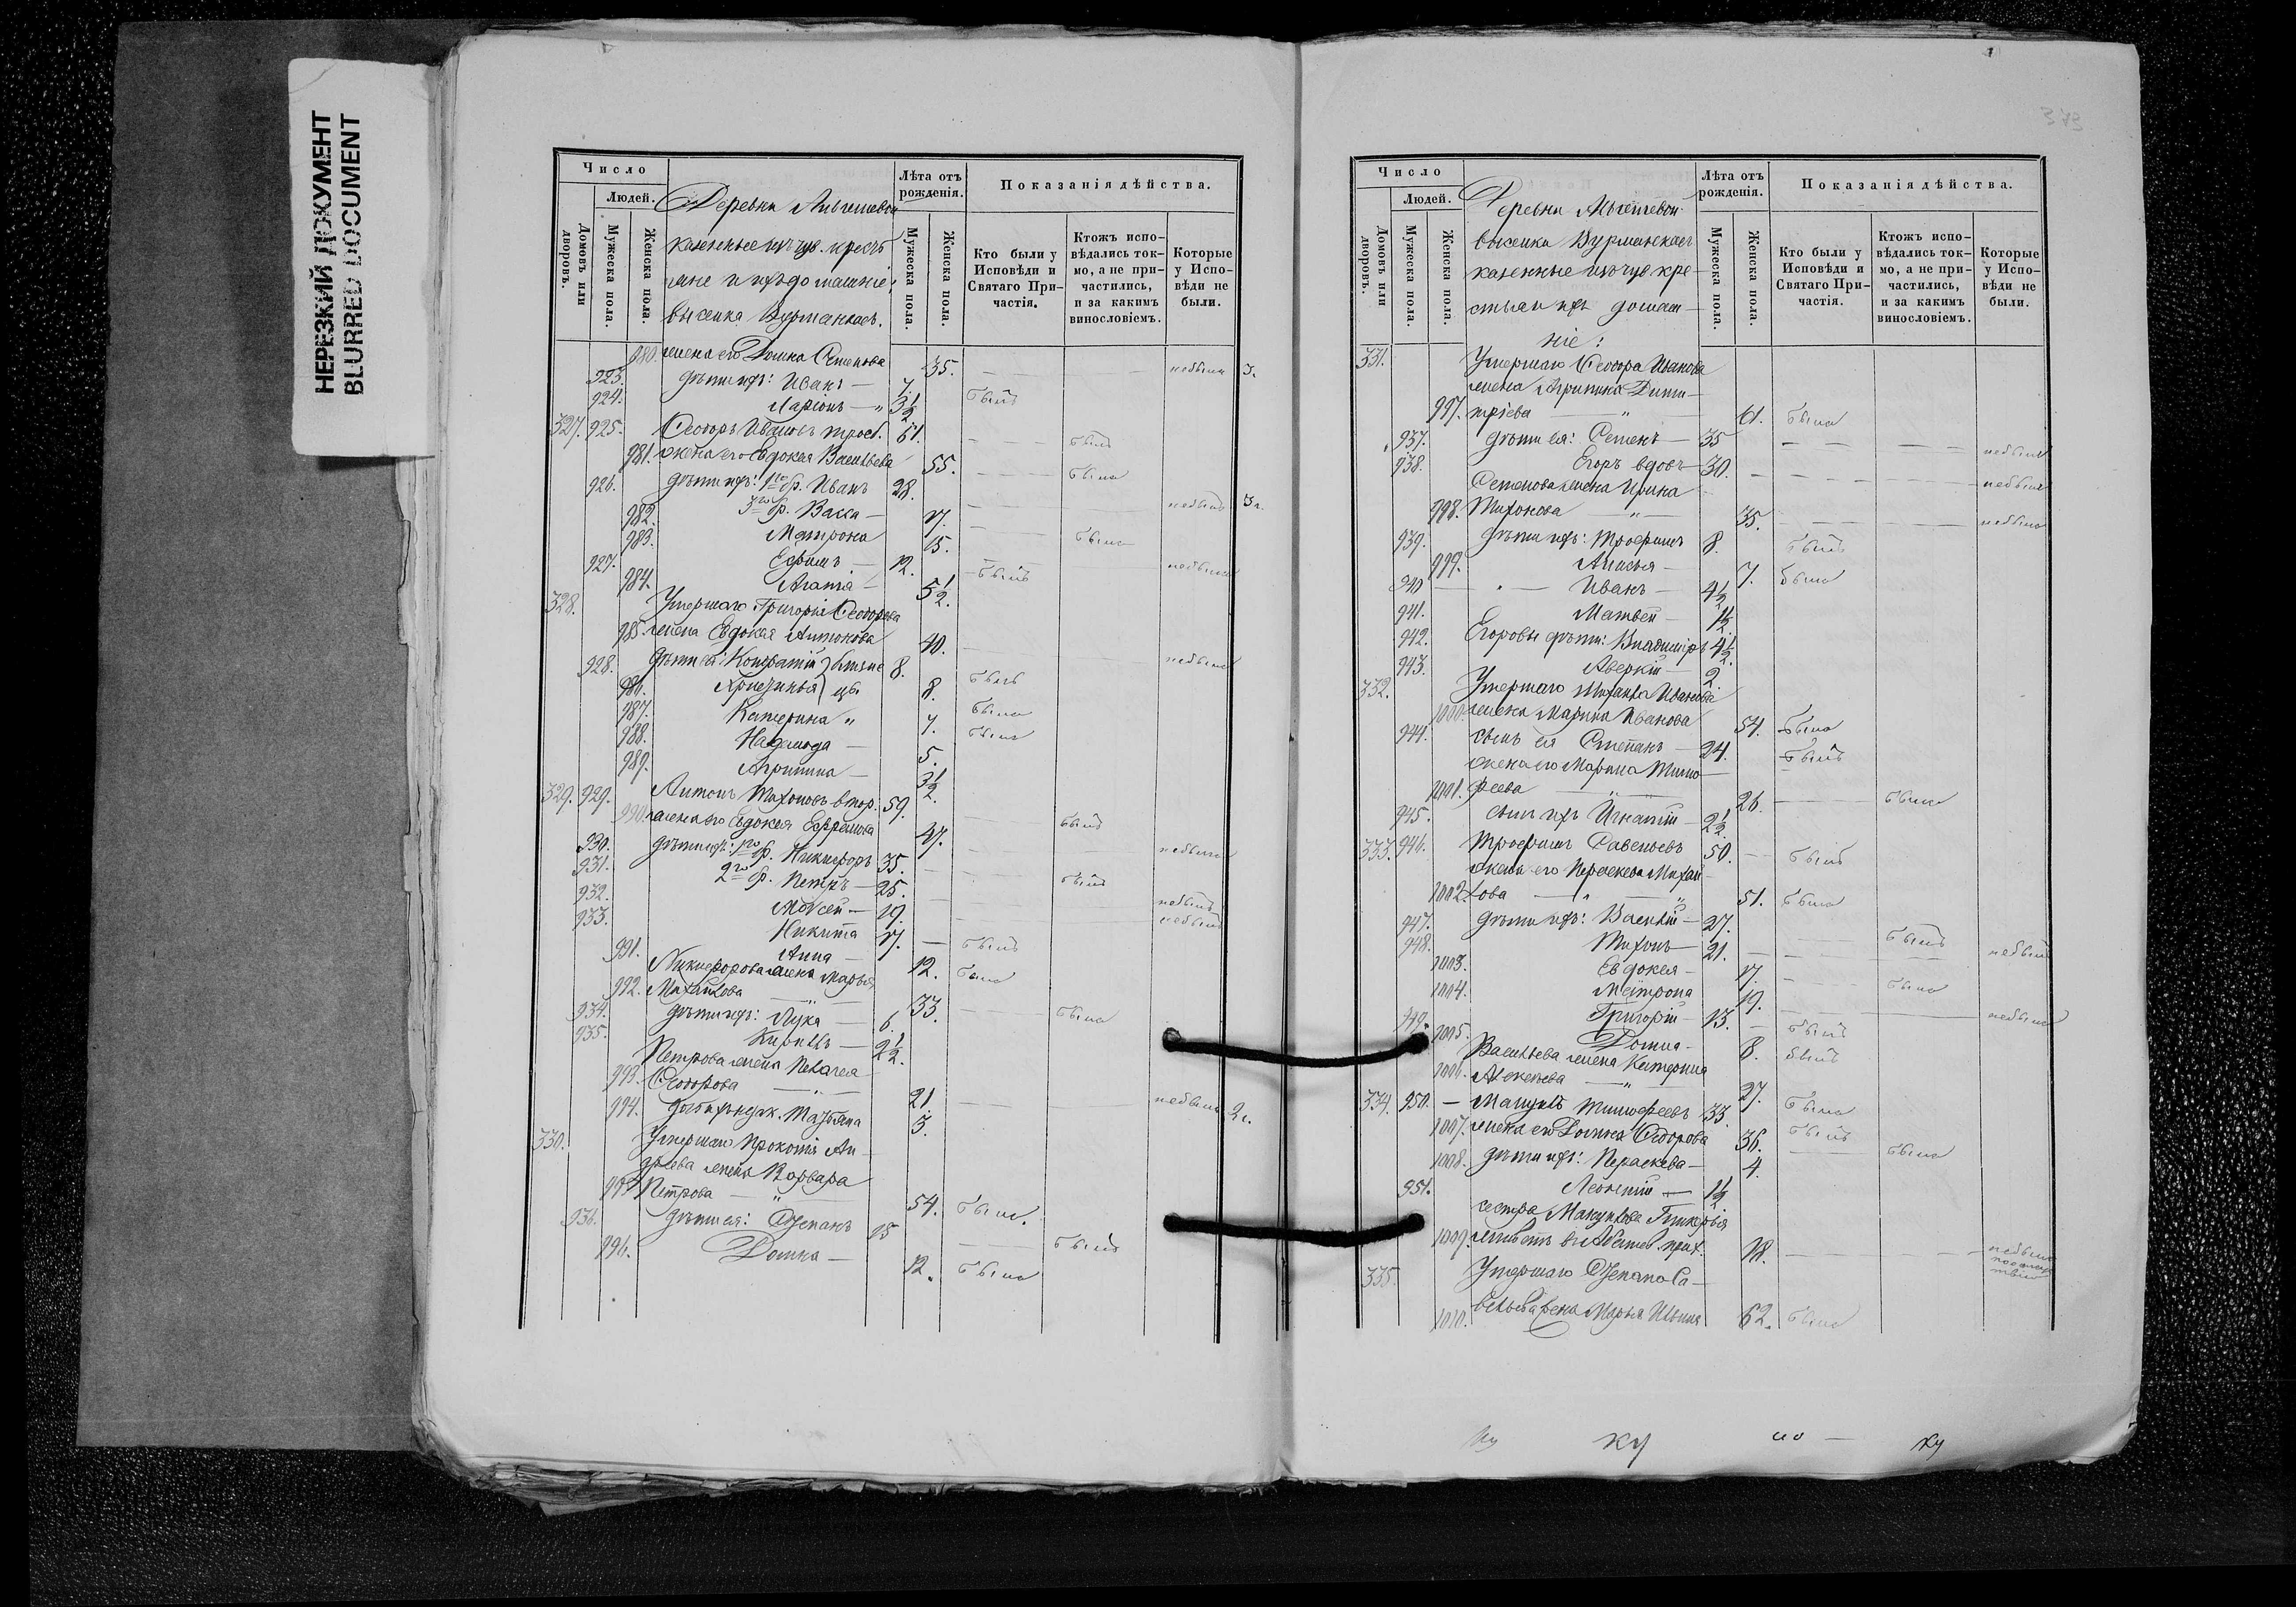 НЕРЕЗКИЙ ДОКУМЕНТ
BLURRED DOCUMENT
Число
Людей.
Домовъ или дворовъ.
Мужеска пола.
Женска пола.
Деревни
казенные изъ чув. кресть
яне и ихъ домашніе,
выселка Вурманкасъ.
Лѣта отъ рожденія.
Мужеска пола.
Женска пола.
Показанія дѣйства.
Кто были у Исповѣди и Святаго Причастія.
Ктожъ исповѣдались токмо, а не причастились, и за какимъ винословіемъ.
Которые у Исповѣди не были.
980. жена его Домна Семенова 35. небыла 3.
923. дѣти ихъ: Иванъ — 7. былъ
924. Ларіонъ — " 3 1/2
327. 925. Ѳеодоръ Ивановъ 61. былъ
981. жена его Евдокея Васильева 55. была
926. дѣти ихъ: 1го бр. Иванъ 28. небылъ 3.
982. 3го бр. Васса — 17.
983. Матрона 15. была
927. Ефимъ — 12. былъ
984. Агапія — 5 1/2
328. Умершаго Григорія Ѳеодорова
985. жена Евдокея Антонова 40. небыла
928. дѣти ея: Кондратій } близне 8. былъ
986. Христинья } цы 8. была
987. Катерина " 7. была
988. Надежда — 5.
989. Агрипина — 3 1/2
329. 929. Антонъ Тихоновъ втор. 59. былъ
990. жена его Евдокея Ефремова 47. небыла
930. дѣти ихъ: 1го бр. Никифоръ 35. былъ
931. 2го бр. Петръ — 25. небылъ
932. Моѵсей — 19. небылъ
933. Никита 17. — былъ
991. Анна — 12. была
Никифорова жена Марья
992. Михайлова — " — 33. была
934. дѣти ихъ: Лука — 6.
935. Кирилъ — 2 1/2
Петрова жена Пелагея
993. Ѳеодорова — " — 21. небыла 2.
994. дочь ихъ Татьяна 3.
330. Умершаго Прокопія Ан-
дреева жена Варвара
995. Петрова — " 54. была.
936. дѣти ея: Степанъ 15 былъ
996. Домна — 12. была
373
Число
Людей.
Домовъ или дворовъ.
Мужеска пола.
Женска пола.
Деревни
выселка Вурманкасъ
казенные изъ чув кре-
стьян ихъ домаш-
ніе:
Лѣта отъ рожденія.
Мужеска пола.
Женска пола.
Показанія дѣйства.
Кто были у Исповѣди и Святаго Причастія.
Ктожъ исповѣдались токмо, а не причастились, и за какимъ винословіемъ.
Которые у Исповѣди не были.
331. Умершаго Ѳеодора Иванова
жена Агрипина Дими-
997. тріева — " 61. была
937. дѣти ея: Семенъ — 35 небылъ
938. Егоръ вдовъ 30. небылъ
Семенова жена Ирина
998. Тихонова — " — 35. небыла
939. дѣти ихъ: Трофимъ 8. былъ
999. Анисья — 7. была
940 — " — Иванъ — 4 1/2
941. Матвей — 1 1/2
942. Егоровы дѣти: Владиміръ 4 1/2
943. Аверкій — 2
332. Умершаго Михаила Иванова
1000. жена Марина Иванова 54. была
944. сынъ ея Степанъ — 24. былъ
жена его Марина Тимо-
1001. феева — " — 26. была
945. сынъ ихъ Игнатій — 2 1/2
333. 946. Трофимъ Савельевъ 50. былъ
жена его Праскева Михай-
1002. лова — " — 51. была
947. дѣти ихъ: Василій — 27. былъ
948. Тихонъ — 21. небылъ
1003. Евдокея — 17. была
1004. Матрона 19. небыла
949. Григорій — 13. былъ
1005. Домна — 8. была
Васильева жена Катерина
1006. Алексѣева — " 27. была
334. 950. — Мануилъ Тимофеевъ 33. былъ
1007. жена его Домна Ѳеодорова 36. была
1008. дѣти ихъ: Параскева — 4.
951. Леонтій — 1 1/2
сестра Мануилова Гликерія
1009. живетъ въ прих. 18. небыла
335. Умершаго Степана Са-
1010. вельева жена Марья Ильина 62. была